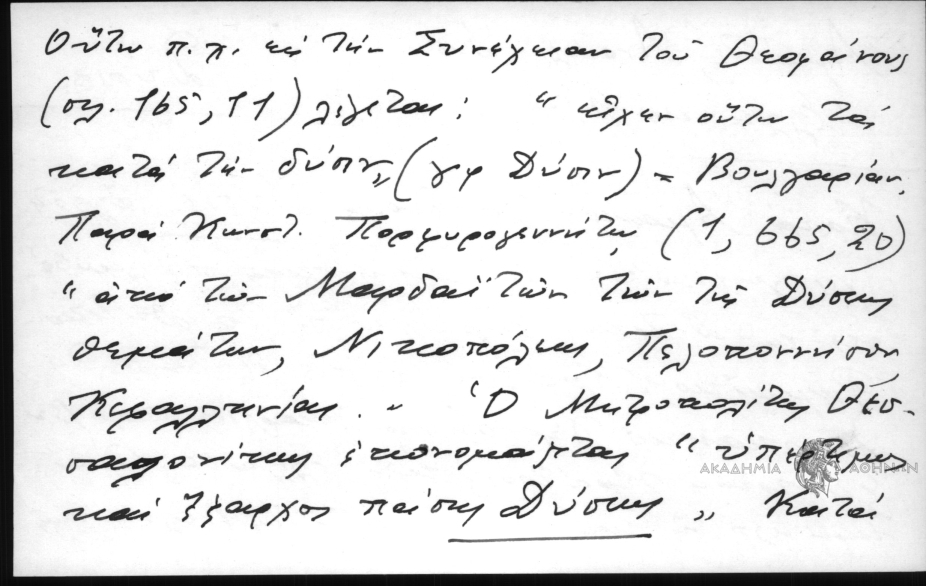 Οὕτω π.χ. εἰς τὴν Συνέχειαν τοῦ Θεοφάνους
(σελ. 165, 11) λέγεται: " εἶχεν οὕτω τὰ
κατὰ τὴν δύσιν" (γρ Δύσιν) = Βουλγαρίαν.
Παρὰ Κωνστ. Πορφυρογεννήτῳ (1, 665, 20)
" ἀπὸ τῶν Μαρδαϊτῶν τῶν τῆς Δύσεως
θεμάτων, Νικοπόλεως, Πελοποννήσου,
Κεφαλληνίας. " Ὁ Μητροπολίτης Θεσ-
σαλονίκης ἐπονομάζεται " ὑπέρτιμος
καὶ ἔξαρχος πάσης Δύσεως " Κατὰ
ΑΚΑΔΗΜΙΑ ΑΘΗΝΩΝ